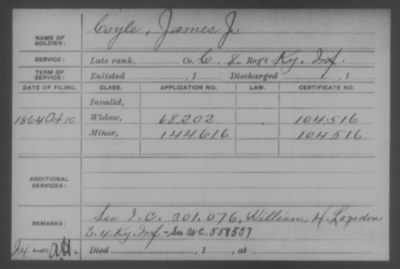 NAME OF SOLDIER: Coyle, James J.
SERVICE: Late rank, Co. C, 8. Reg't Ky. Inf.
TERM OF SERVICE: Enlisted , 1 Discharged , 1
DATE OF FILING. CLASS. APPLICATION NO. LAW. CERTIFICATE NO.
Invalid,
1864 Oct 10 Widow, 68.202 104.516
Minor, 144.616 104.516
ADDITIONAL SERVICES:
REMARKS: See I.C. 301.076, William H. Logsdon
E. 4. Ky. Inf. - See W.C. 558537
Died , 1 , at